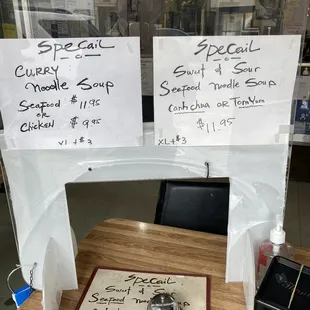 Specail
Curry
Noodle Soup
Seafood $11.95
or
Chicken $9.95
XL + $3
Specail
Swut & Sour
Seafood Noodle Soup
Canh chua or Tom Yum
$11.95
XL + $3
Specail
Swut & Sour
Seafood Noodle